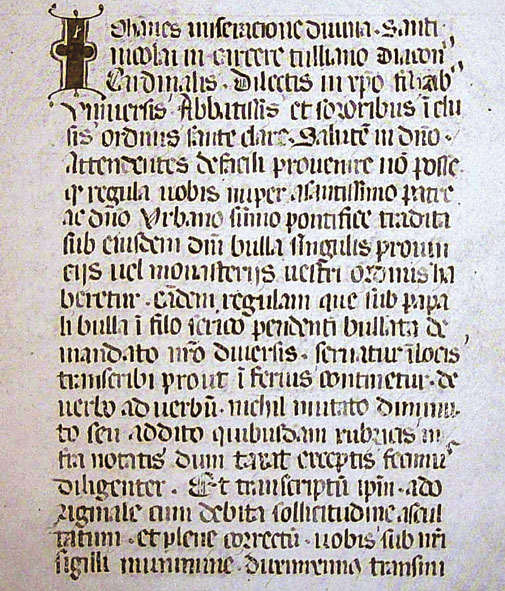 Iohanes miseracione divina · Santi
nicolai in carcere tulliano Diacon'
Cardinalis · Dilectis in xpo filiab'
Vniversis · Abbatissis et sororibus ī clu
sis ordinis sante clare · Salutē in dño ·
Attendentes de facili provenire nō posse
qr regula vobis nuper a santissimo patre
ac dño Vrbano sūmo pontifice tradita
sub eiusdem dñi bulla singulis provin
cijs vel monasterijs vestri ordinis ha
beretur · eādem regulam que sub papa
li bulla ī filo serico pendenti bullata de
mandato nrō diversis · servatur ī locis
transcribi prout ī ferius continetur · de
verbo ad verbū · nichil mutato diminu
to seu addito quibusdam rubricis in
fra notatis dum taxat exceptis fecimu'
diligenter · Et transcriptū ipm̄ · ad o
riginale cum debita sollicitudine ascul
tatum · et plene correctū · vobis sub nrī
sigilli munimine · duximus transmi